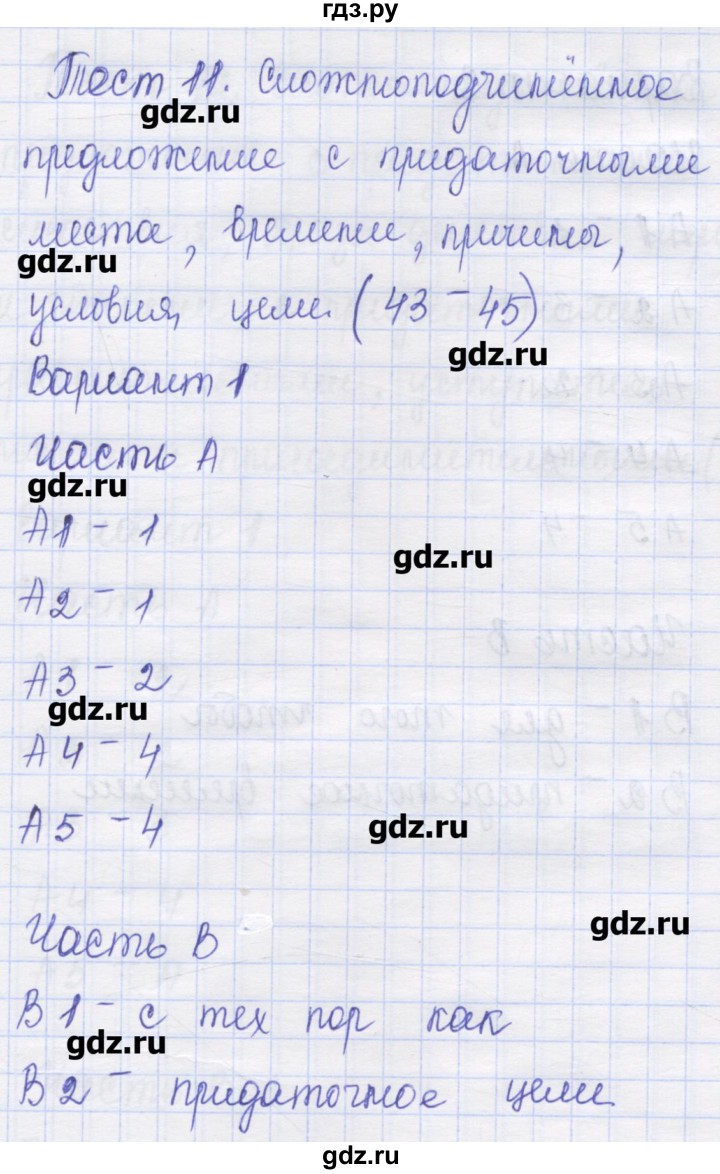 гдз.ру
Тест 11. Сложноподчинённое
gdz.ru
предложение с придаточными
места, времени, причины,
gdz.ru
условия, цели. (43 - 45)
gdz.ru
Вариант 1
Часть А
gdz.ru
А1 - 1
gdz.ru
А2 - 1
А3 - 2
gdz.ru
А4 - 4
А5 - 4
gdz.ru
gdz.ru
Часть В
В1 - с тех пор как
gdz.ru
В2 - придаточное цели
gdz.ru